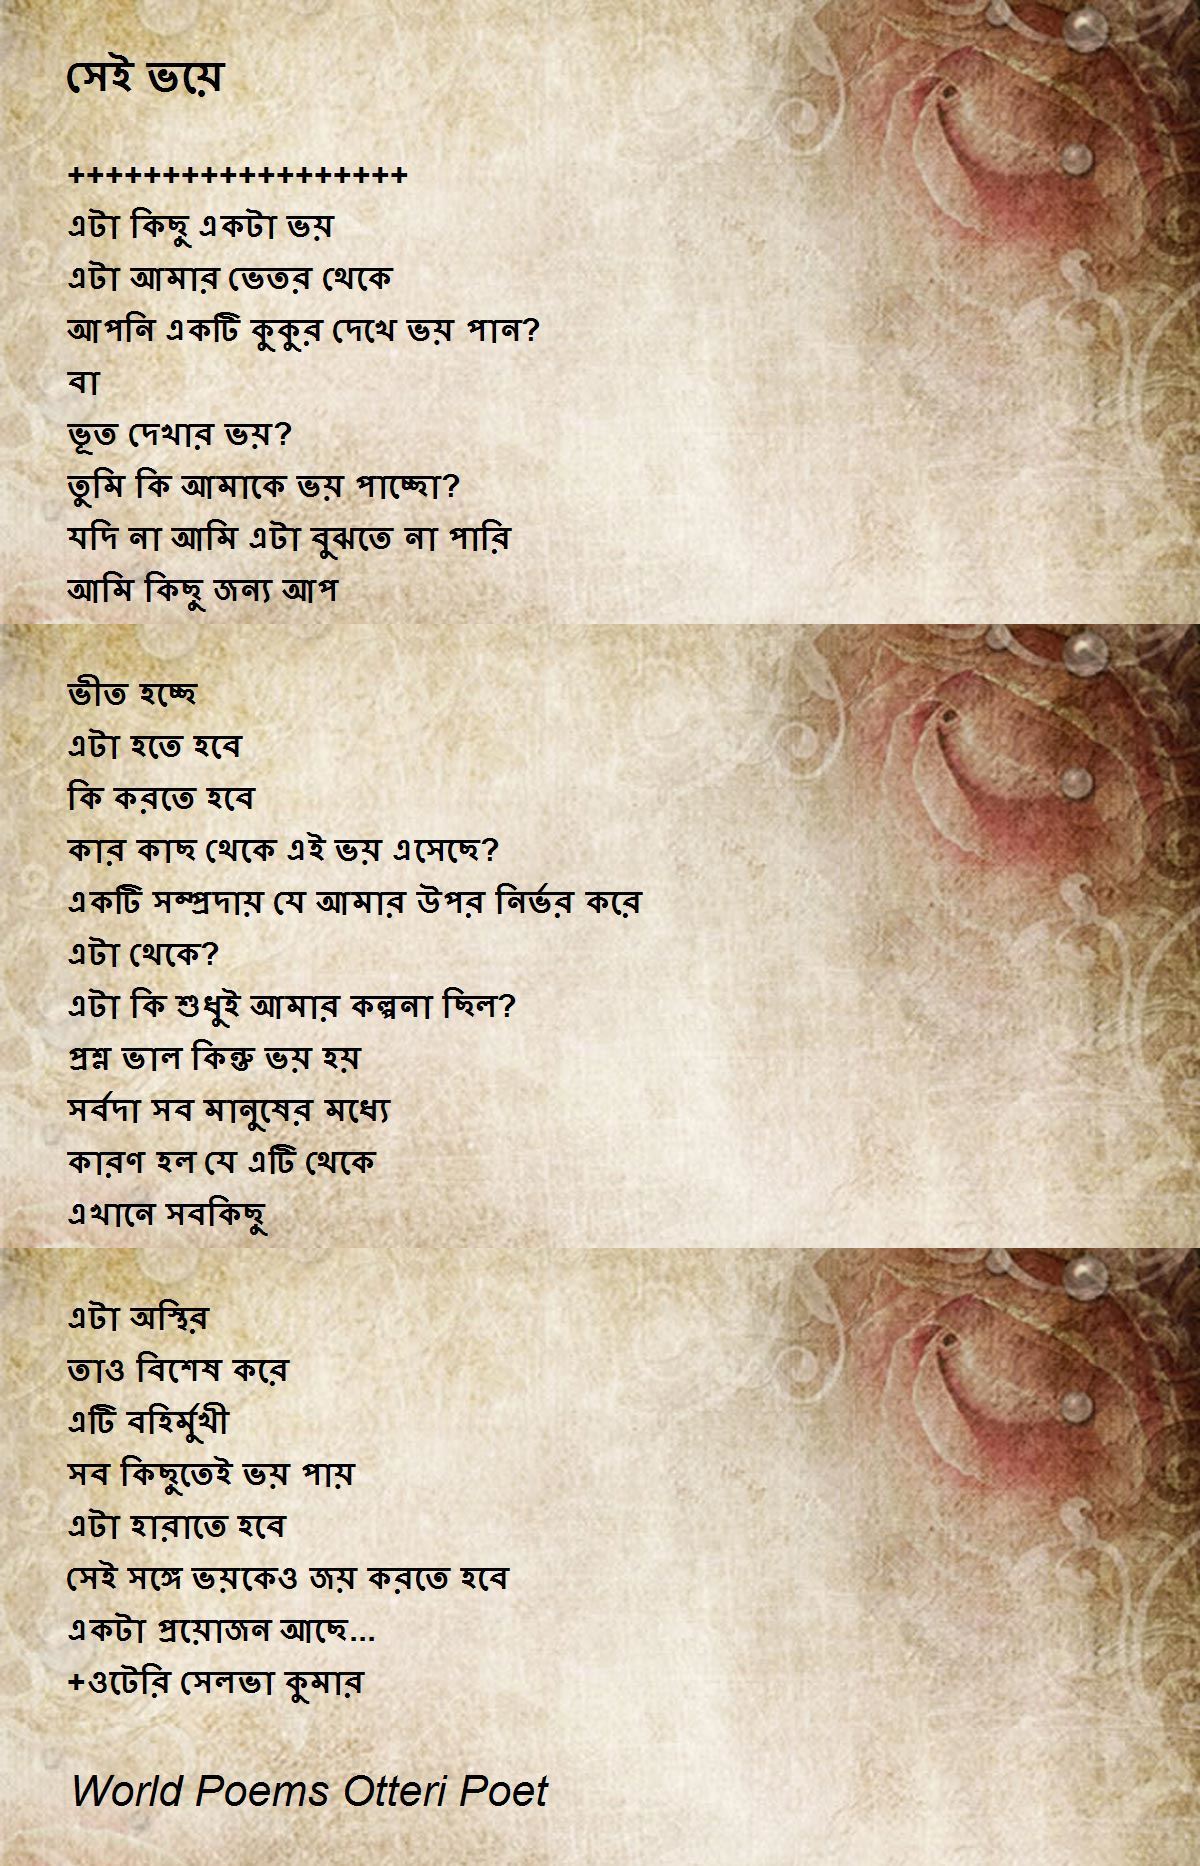 সেই ভয়ে
++++++++++++++++++
এটা কিছু একটা ভয়
এটা আমার ভেতর থেকে
আপনি একটি কুকুর দেখে ভয় পান?
বা
ভূত দেখার ভয়?
তুমি কি আমাকে ভয় পাচ্ছো?
যদি না আমি এটা বুঝতে না পারি
আমি কিছু জন্য আপ
ভীত হচ্ছে
এটা হতে হবে
কি করতে হবে
কার কাছ থেকে এই ভয় এসেছে?
একটি সম্প্রদায় যে আমার উপর নির্ভর করে
এটা থেকে?
এটা কি শুধুই আমার কল্পনা ছিল?
প্রশ্ন ভাল কিন্তু ভয় হয়
সর্বদা সব মানুষের মধ্যে
কারণ হল যে এটি থেকে
এখানে সবকিছু
এটা অস্থির
তাও বিশেষ করে
এটি বহির্মুখী
সব কিছুতেই ভয় পায়
এটা হারাতে হবে
সেই সঙ্গে ভয়কেও জয় করতে হবে
একটা প্রয়োজন আছে...
+ওটেরি সেলভা কুমার
World Poems Otteri Poet